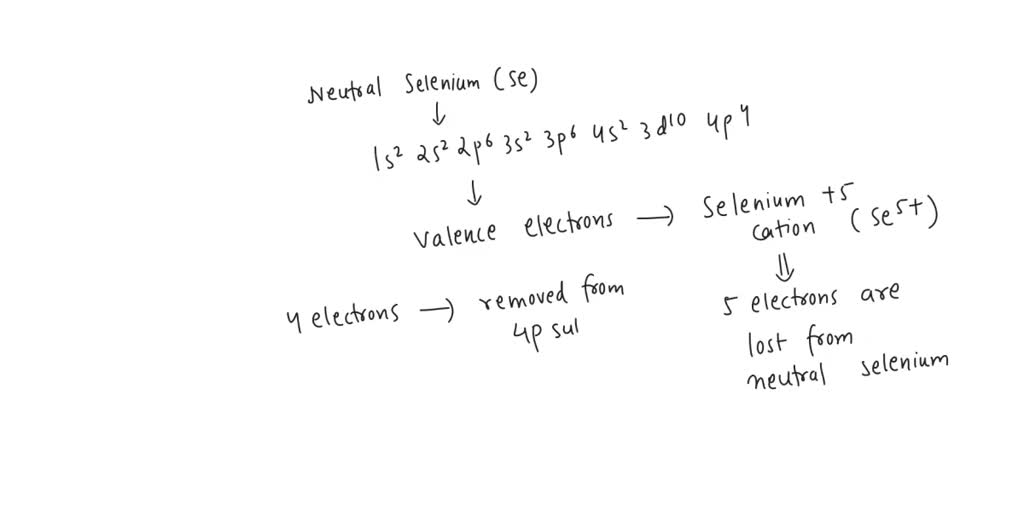 Neutral Selenium (Se)
↓
1s² 2s² 2p⁶ 3s² 3p⁶ 4s² 3d¹⁰ 4p⁴
↓
Valence electrons → Selenium +5
cation (Se⁵⁺)
⇓
4 electrons → removed from
4p sul
5 electrons are
lost from
neutral selenium